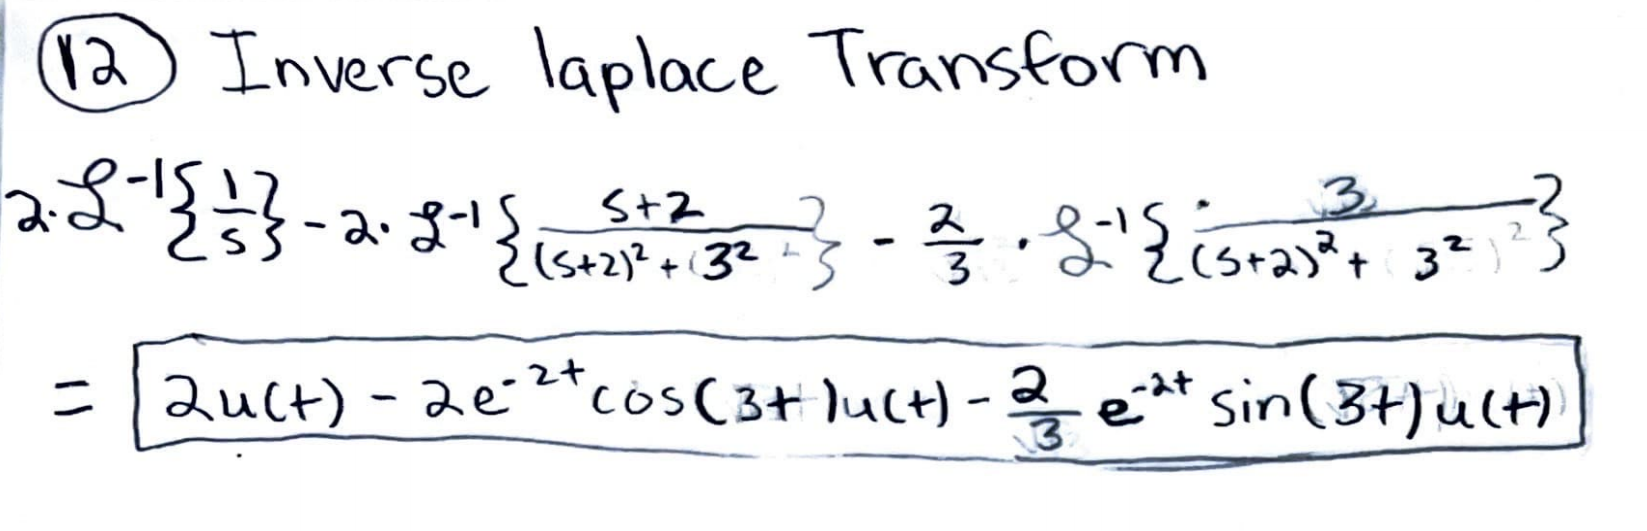 12 Inverse laplace Transform
2·ℒ⁻¹{1/s} - 2·ℒ⁻¹{s+2/((s+2)²+(3²} - 2/3·ℒ⁻¹{3/((s+2)²+(3²)²}
= 2u(t) - 2e^-2t cos(3t)u(t) - 2/3 e^-2t sin(3t)u(t)